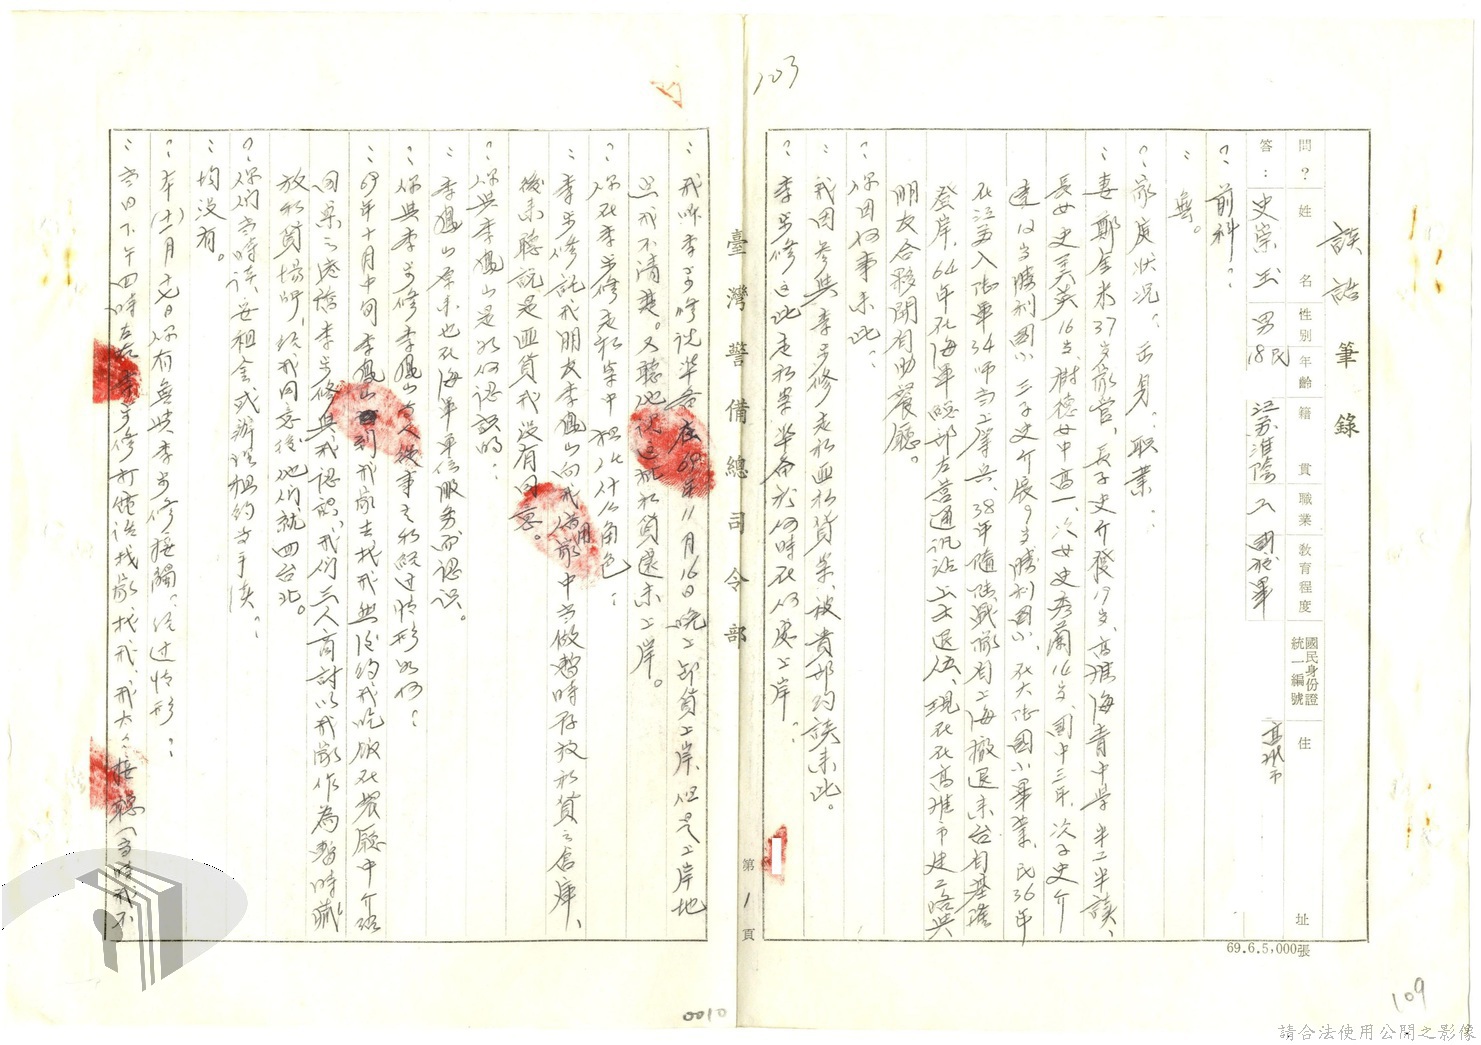 談話筆錄
問？ 姓名 性別 年齡 籍貫 職業 教育程度 國民身份證統一編號 住址
答：史崇玉 男 民18 江蘇淮陰 工 國校畢 高雄市
？前科：
：無。
？家庭狀況？出身、職業：
：妻鄭金來37岁家管，長子史介發19岁高雄海青中學半工半讀、
長女史美英16岁樹德女中高一、次女史秀蘭14岁國中三年、次子史介
達12岁勝利國小、三子史介展9岁勝利國小、在大陸國小畢業、民36年
在江蘇入陸軍34師当上等兵、38年隨陸戰撤自上海撤退來台自基隆
登岸，64年在海軍總部左營通訊站上士退伍、現在在高雄市建路與
朋友合夥開自助餐廳。
？你因何事來此：
：我因參與李步修走私匪私貨案被貴部約談來此。
？李步修這批走私案準備於何時在何處上岸：
：我听李步修說準备在69年11月16日晚上卸貨上岸，但是上岸地
點我不清楚。又聽他說這批私貨還未上岸。
？你在李步修走私案中担任什么角色：
：李步修託我朋友李鳳山向我借用家中当做暫時存放私貨之倉庫、
後來聽說是匪貨我没有同意。
？你與李鳳山是如何認識的：
：李鳳山原來也在海軍單位服务而認识。
？你與李步修李鳳山貳人從事之的經过情形如何：
：69年十月中旬李鳳山到我家去找我然後約我吃飯在餐廳中介紹
同案之李步修與我認識，我們三人商討以我家作為暫時藏
放私貨場所，經我同意後他們就回台北。
？你們当時談妥租金或辦理租約等手续：
：均没有。
？本(十一)月十七日你有無與李步修接觸？经过情形：
：当日下午四時左右李步修打電話找家找我，我太太接聽(当時我不
臺灣警備總司令部
第1頁
69.6.5,000張
103
109
0010
請合法使用公開之影像